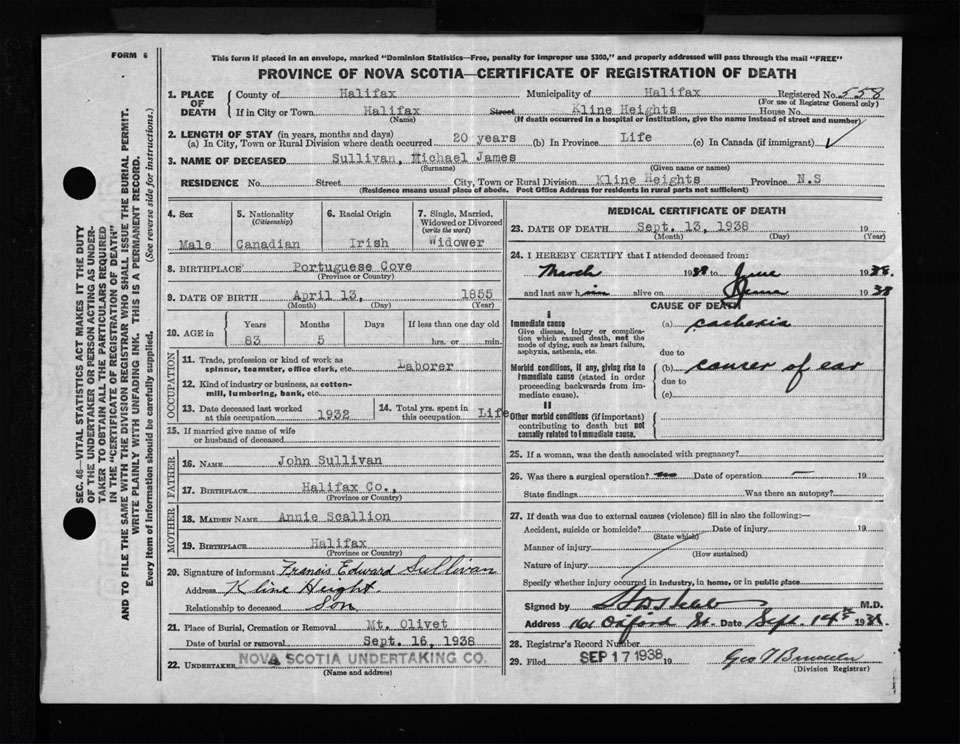 FORM 6
This form if placed in an envelope, marked "Dominion Statistics—Free, penalty for improper use $300," and properly addressed will pass through the mail "FREE"
PROVINCE OF NOVA SCOTIA—CERTIFICATE OF REGISTRATION OF DEATH
SEC. 46—VITAL STATISTICS ACT MAKES IT THE DUTY
OF THE UNDERTAKER OR PERSON ACTING AS UNDER-
TAKER TO OBTAIN ALL THE PARTICULARS REQUIRED
IN THE "CERTIFICATE OF REGISTRATION OF DEATH"
AND TO FILE THE SAME WITH THE DIVISION REGISTRAR WHO SHALL ISSUE THE BURIAL PERMIT.
WRITE PLAINLY WITH UNFADING INK. THIS IS A PERMANENT RECORD.
Every item of information should be carefully supplied. (See reverse side for instructions.)
1. PLACE OF DEATH
County of Halifax Municipality of Halifax Registered No. 558
(For use of Registrar General only)
If in City or Town Halifax Street Kline Heights House No.
(Name) (If death occurred in a hospital or institution, give the name instead of street and number)
2. LENGTH OF STAY (in years, months and days)
(a) In City, Town or Rural Division where death occurred 20 years (b) In Province Life (c) In Canada (if immigrant) ✓
3. NAME OF DECEASED Sullivan, Michael James
(Surname) (Given name or names)
RESIDENCE No. Street City, Town or Rural Division Kline Heights Province N.S
(Residence means usual place of abode. Post Office Address for residents in rural parts not sufficient)
4. Sex
Male
5. Nationality
(Citizenship)
Canadian
6. Racial Origin
Irish
7. Single, Married,
Widowed or Divorced
(write the word)
Widower
8. BIRTHPLACE Portuguese Cove
(Province or Country)
9. DATE OF BIRTH April 13, 1855
(Month) (Day) (Year)
10. AGE in Years Months Days If less than one day old
83 5 hrs. or min.
OCCUPATION
11. Trade, profession or kind of work as
spinner, teamster, office clerk, etc. Laborer
12. Kind of industry or business, as cotton-
mill, lumbering, bank, etc.
13. Date deceased last worked
at this occupation 1932
14. Total yrs. spent in
this occupation Life
15. If married give name of wife
or husband of deceased
FATHER
16. NAME John Sullivan
17. BIRTHPLACE Halifax Co.,
(Province or Country)
MOTHER
18. MAIDEN NAME Annie Scallion
19. BIRTHPLACE Halifax
(Province or Country)
20. Signature of informant Francis Edward Sullivan
Address Kline Height.
Relationship to deceased Son
21. Place of Burial, Cremation or Removal Mt. Olivet
Date of burial or removal Sept. 16, 1938
22. UNDERTAKER NOVA SCOTIA UNDERTAKING CO.
(Name and address)
MEDICAL CERTIFICATE OF DEATH
23. DATE OF DEATH Sept. 13, 1938 19
(Month) (Day) (Year)
24. I HEREBY CERTIFY that I attended deceased from:
March 1938 to June 1938.
and last saw him alive on June 1938
CAUSE OF DEATH
I
Immediate cause
Give disease, injury or complica-
tion which caused death, not the
mode of dying, such as heart failure,
asphyxia, asthenia, etc.
(a) cachexia
due to
Morbid conditions, if any, giving rise to
immediate cause (stated in order
proceeding backwards from im-
mediate cause).
(b) cancer of ear
due to
(c)
II
Other morbid conditions (if important)
contributing to death but not
causally related to immediate cause.
25. If a woman, was the death associated with pregnancy?
26. Was there a surgical operation? no Date of operation — 19
State findings Was there an autopsy?
27. If death was due to external causes (violence) fill in also the following:—
Accident, suicide or homicide? Date of injury 19
(State which)
Manner of injury
(How sustained)
Nature of injury
Specify whether injury occurred in industry, in home, or in public place
Signed by M.D.
Address Oxford St. Date Sept. 14th 1938.
28. Registrar's Record Number
29. Filed SEP 17 1938 19
(Division Registrar)